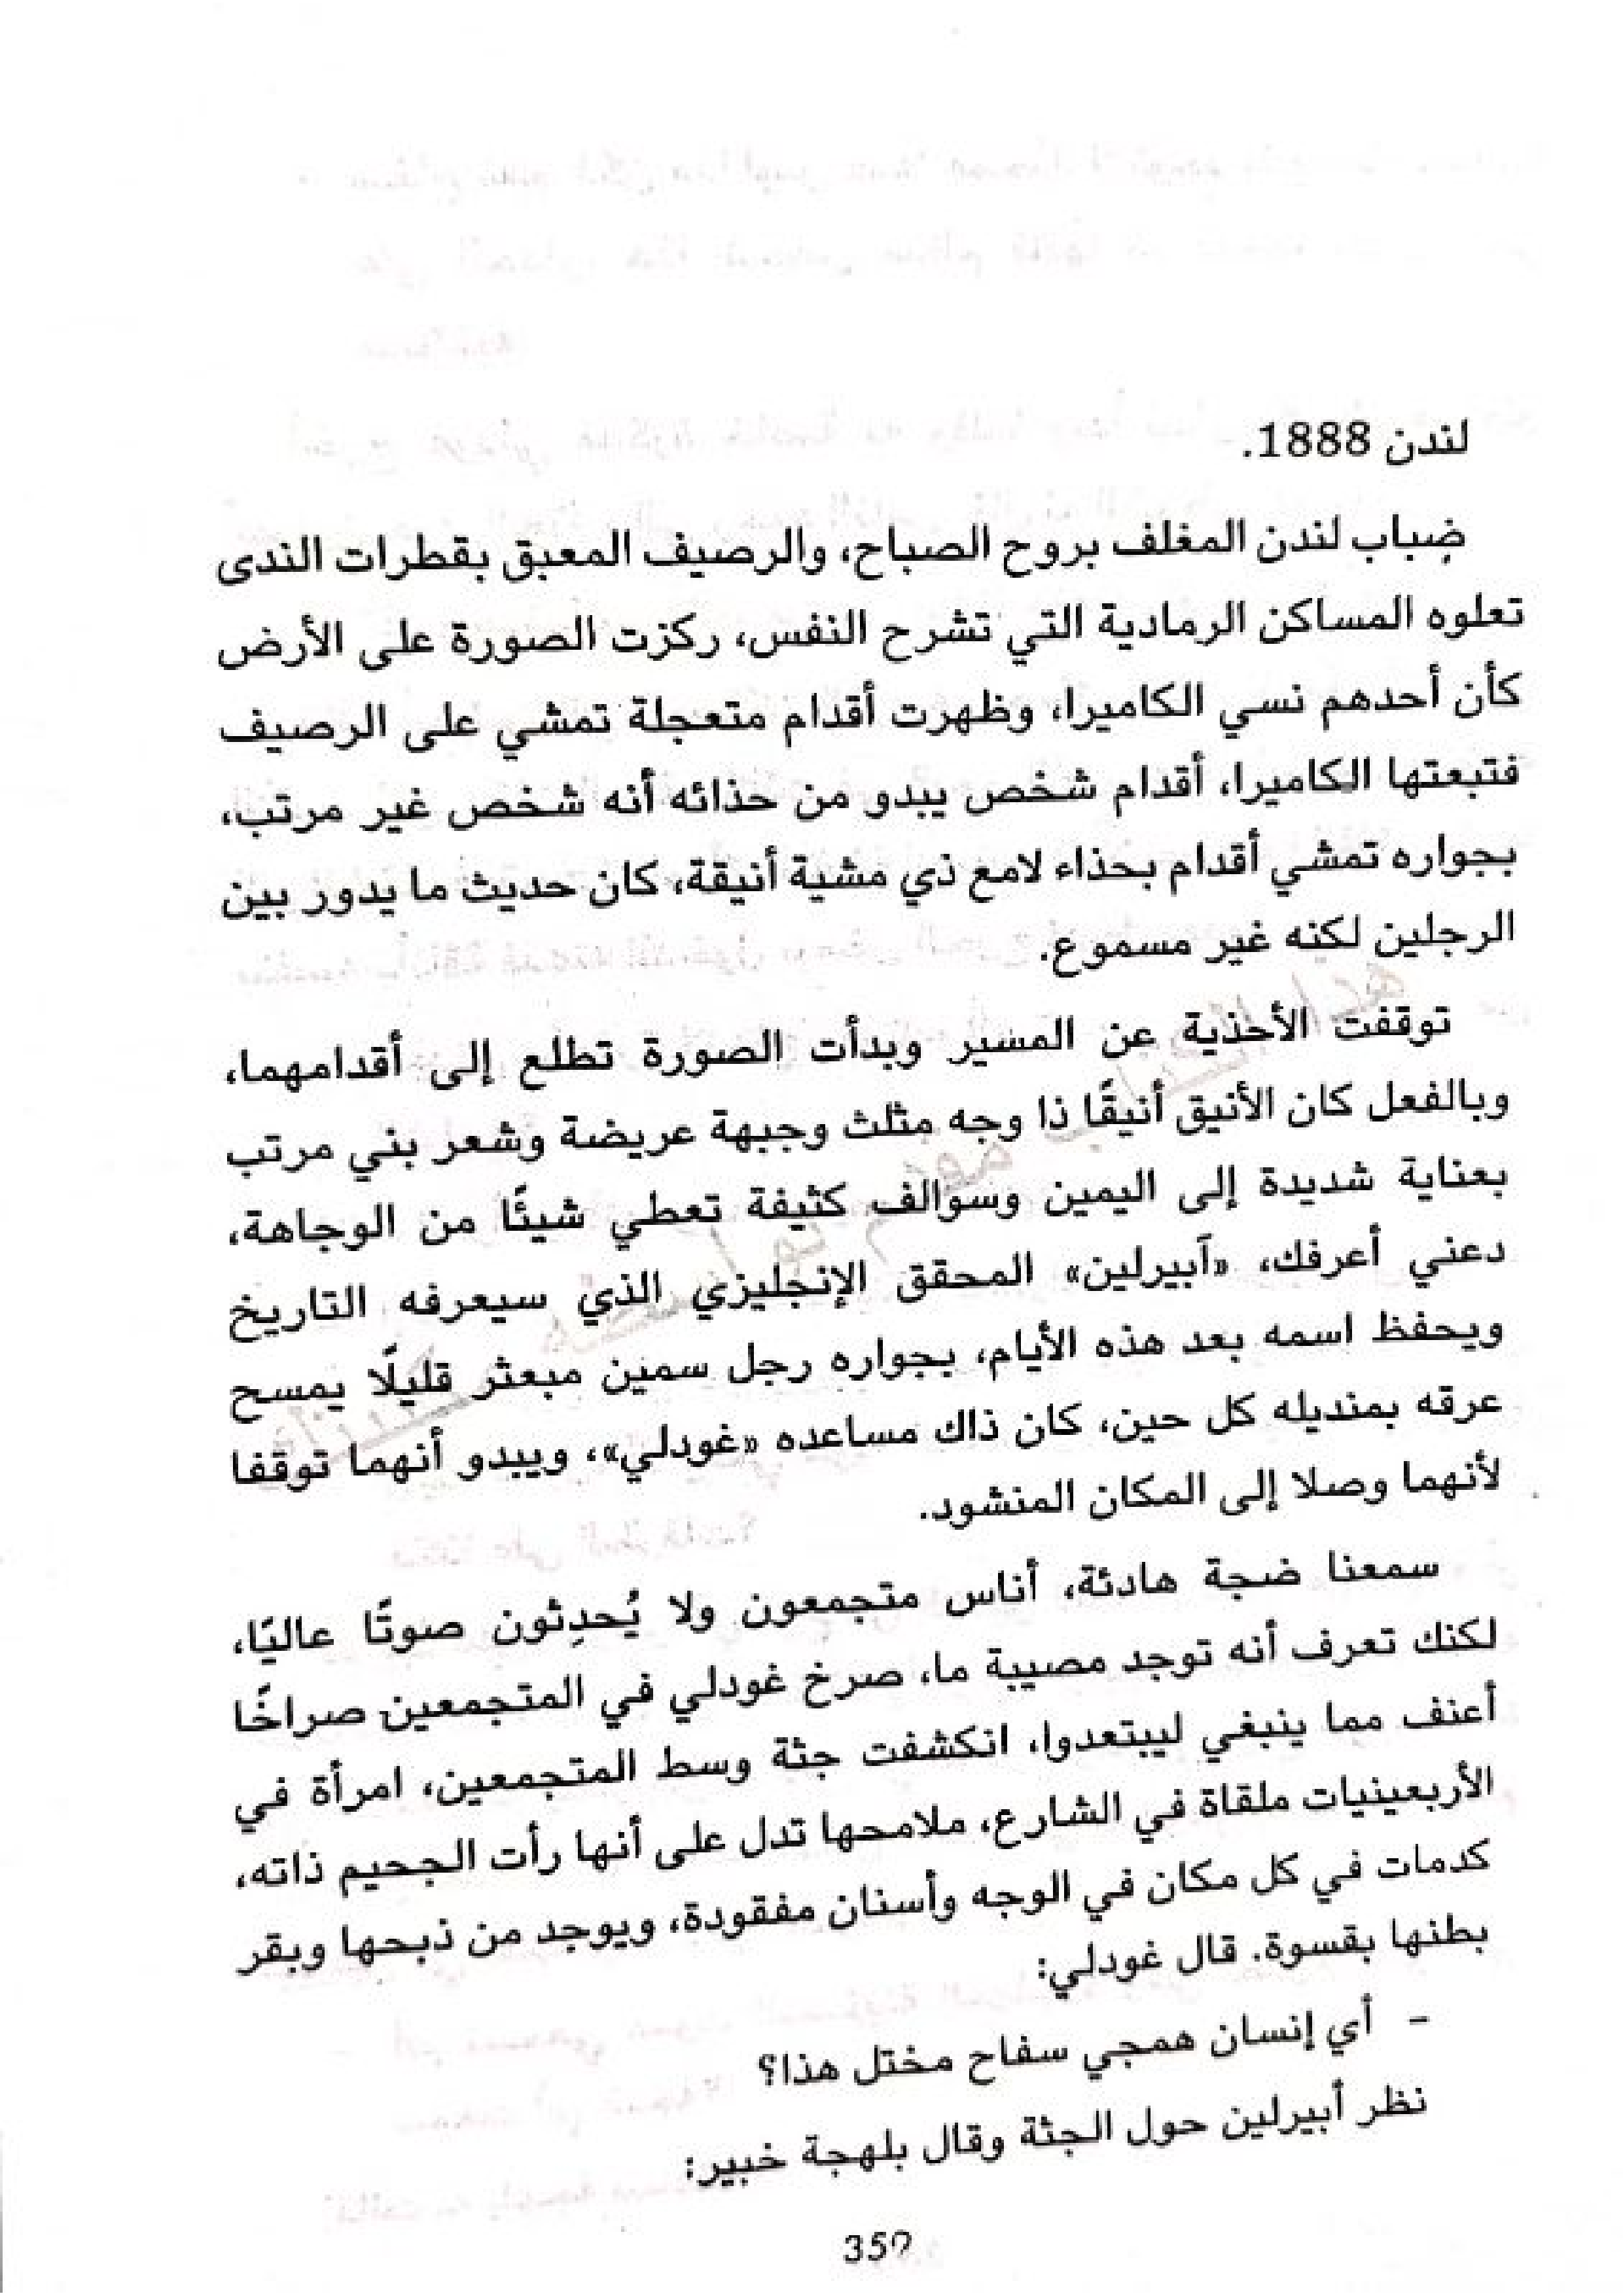 لندن 1888.
ضِباب لندن المغلف بروح الصباح، والرصيف المعبق بقطرات الندى
تعلوه المساكن الرمادية التي تشرح النفس، ركزت الصورة على الأرض
كأن أحدهم نسي الكاميرا، وظهرت أقدام متعجلة تمشي على الرصيف
فتبعتها الكاميرا، أقدام شخص يبدو من حذائه أنه شخص غير مرتب،
بجواره تمشي أقدام بحذاء لامع ذي مشية أنيقة، كان حديث ما يدور بين
الرجلين لكنه غير مسموع.
توقفت الأحذية عن المسير وبدأت الصورة تطلع إلى أقدامهما،
وبالفعل كان الأنيق أنيقًا ذا وجه مثلث وجبهة عريضة وشعر بني مرتب
بعناية شديدة إلى اليمين وسوالف كثيفة تعطي شيئًا من الوجاهة،
دعني أعرفك، «آبيرلين» المحقق الإنجليزي الذي سيعرفه التاريخ
ويحفظ اسمه بعد هذه الأيام، بجواره رجل سمين مبعثر قليلًا يمسح
عرقه بمنديله كل حين، كان ذاك مساعده «غودلي»، ويبدو أنهما توقفا
لأنهما وصلا إلى المكان المنشود.
سمعنا ضجة هادئة، أناس متجمعون ولا يُحدِثون صوتًا عاليًا،
لكنك تعرف أنه توجد مصيبة ما، صرخ غودلي في المتجمعين صراخًا
أعنف مما ينبغي ليبتعدوا، انكشفت جثة وسط المتجمعين، امرأة في
الأربعينيات ملقاة في الشارع، ملامحها تدل على أنها رأت الجحيم ذاته،
كدمات في كل مكان في الوجه وأسنان مفقودة، ويوجد من ذبحها وبقر
بطنها بقسوة. قال غودلي:
- أي إنسان همجي سفاح مختل هذا؟
نظر أبيرلين حول الجثة وقال بلهجة خبير: